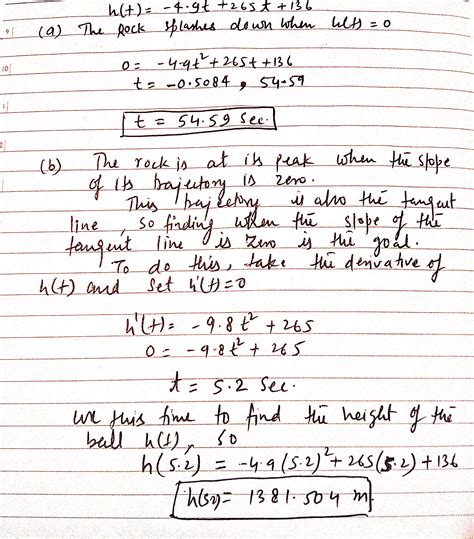 h(t) = -4.9t² + 265t + 136
(a) The Rock splashes down when h(t) = 0
0 = -4.9t² + 265t + 136
t = -0.5084, 54.59
t = 54.59 sec.
(b) The rock is at its peak when the slope
of its trajectory is zero.
This trajectory is also the tangent
line, so finding when the slope of the
tangent line is zero is the goal.
To do this, take the derivative of
h(t) and set h'(t)=0
h'(t) = -9.8t² + 265
0 = -9.8t² + 265
t = 5.2 sec.
use this time to find the height of the
ball h(t), so
h(5.2) = -4.9(5.2)² + 265(5.2) + 136
h(5.2) = 1381.504 m